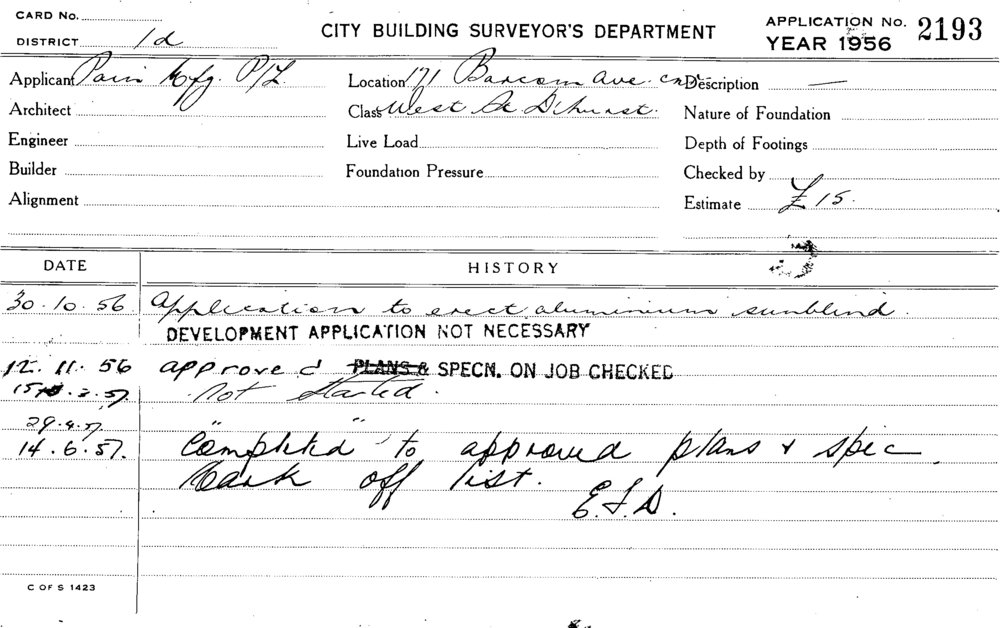 CARD No.
DISTRICT 1d
CITY BUILDING SURVEYOR'S DEPARTMENT
APPLICATION No. 2193
YEAR 1956
Applicant Mfg. P/L
Location 171 Barcom Ave. cnr
Description —
Architect
Class West St D'hurst.
Nature of Foundation
Engineer
Live Load
Depth of Footings
Builder
Foundation Pressure
Checked by
Alignment
Estimate £15.
DATE
HISTORY
30.10.56 Application to erect aluminium sunblind.
DEVELOPMENT APPLICATION NOT NECESSARY
12.11.56 approved PLANS & SPECN. ON JOB CHECKED
.3.57. Not started.
29.4.57. " "
14.6.57. Completed to approved plans & spec.
Mark off list.
E.J.D.
C OF S 1423